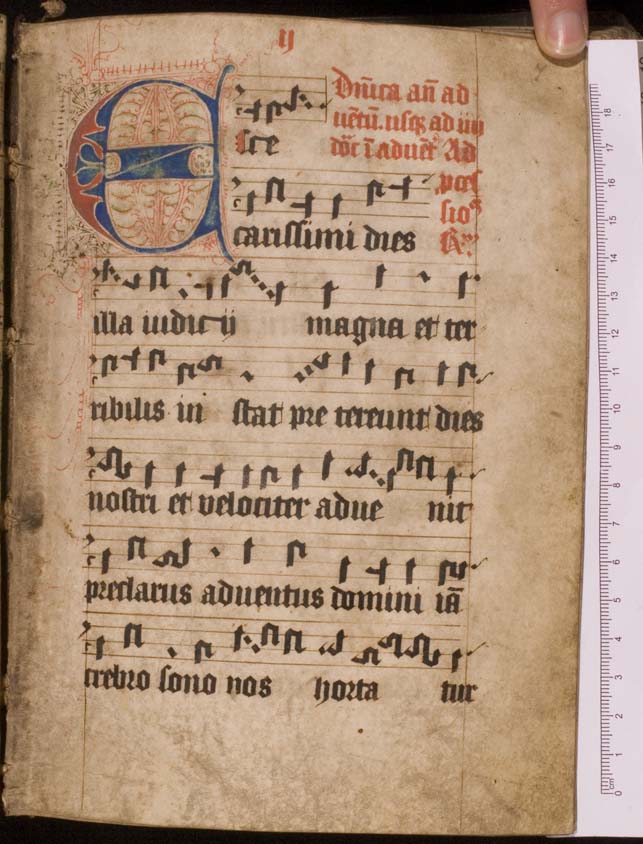 ij
Dn̄ica an̄ ad
uētū. usq; ad iiij
Esce
dōc ī aduēt Ad
pces
sioꝭ
carissimi dies
R̄
illa iudic ij magna et ter
ribilis in stat pre tereunt dies
nostri et velociter adue nit
preclarus aduentus domini iā
crebro sono nos horta tur
cm 0 1 2 3 4 5 6 7 8 9 10 11 12 13 14 15 16 17 18